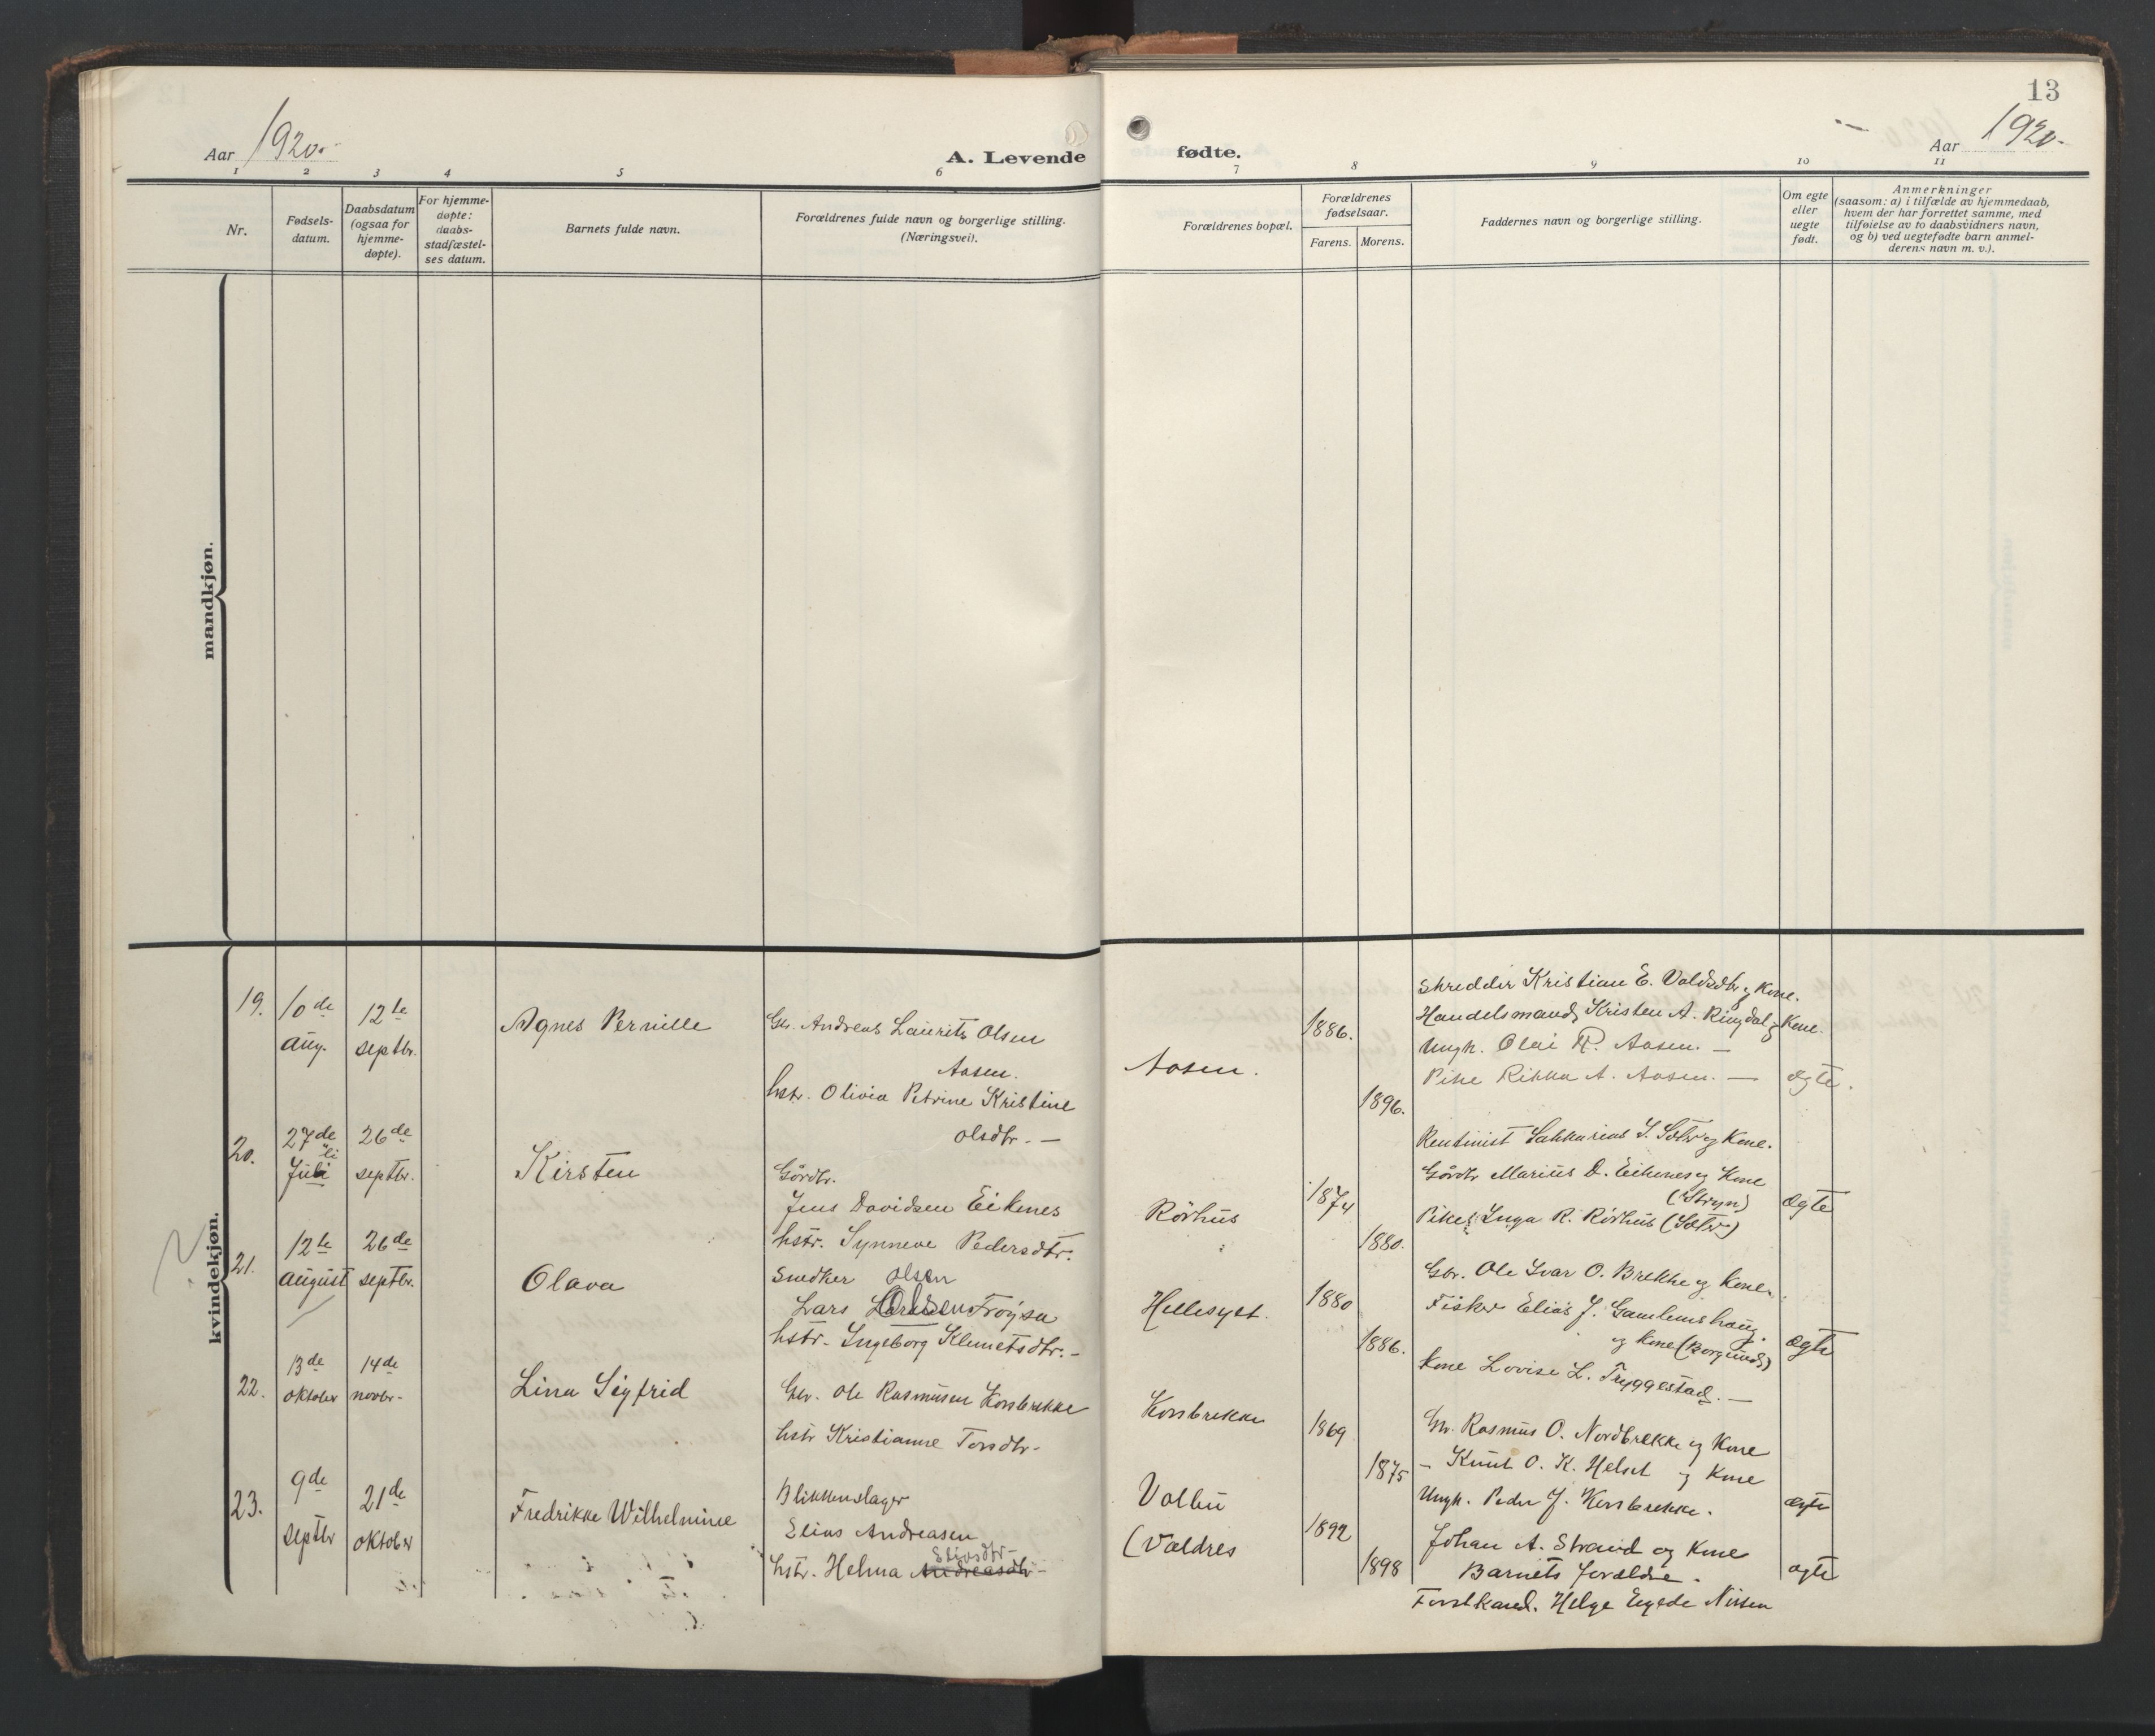 13
Aar 1920.
A. Levende fødte.
Aar 1920.
1 2 3 4 5 6 7 8 9 10 11
Nr.
Fødsels-
datum.
Daabsdatum
(ogsaa for
hjemme-
døpte).
For hjemme-
døpte:
daabs-
stadfæstel-
ses datum.
Barnets fulde navn.
Forældrenes fulde navn og borgerlige stilling.
(Næringsvei).
Forældrenes bopæl.
Forældrenes
fødselsaar.
Farens. Morens.
Faddernes navn og borgerlige stilling.
Om egte
eller
uegte
født.
Anmerkninger
(saasom: a) i tilfælde av hjemmedaab,
hvem der har forrettet samme, med
tilføielse av to daabsvidners navn,
og b) ved uegtefødte barn anmel-
derens navn m. v.).
mandkjøn.
kvindekjøn.
19.
10de
aug.
12te
septbr.
Agnes Pernille
Gbr. Andreas Laurits Olsen
Aasen.
hstr. Olivia Petrine Kristine
Olsdtr. —
Aasen.
1886.
1896.
Skredder Kristian E. Voldsdtr og Kone.
Handelsmand Kristen A. Ringdal og Kone.
Ungk. Olai P. Aasen. —
Pike Rikka A. Aasen. —
Ægte.
20.
27de
li
Juli
26de
septbr.
Kirsten
Gårdbr.
Jens Davidsen Eikenes
hstr. Synneve Pedersdtr.
Rørhus
1874
1880.
Rentenist Sakkarias S. Sæter og Kone.
Gårdbr Marius D. Eikenes og Kone
(Stryn)
Pike Inga R. Rørhus (Sæter)
Ægte
21.
12te
august
26de
septbr.
Olava
Snedker Olsen
Lars Olsen Frøysa
hstr. Ingeborg Klemetsdtr. -
Hellesylt.
1880
1886.
Gbr. Ole Ivar O. Brekke og Kone.
Fisker Elias J. Gamlemshaug.
og Kone (Borgund)
Kone Lovise L. Tryggestad. —
Ægte
22.
13de
oktober
14de
novbr.
Lina Sigfrid
Gbr. Ole Rasmusen Korsbrekke
hstr Kristianne Torsdtr-
Korsbrekke
1869
1875
Gbr. Rasmus O. Nordbrekke og Kone
- Knut O. K. Helset og Kone
Ungk. Peder J. Korsbrekke.
Ægte
23.
9de
septbr
21de
oktober
Fredrikke Wilhelmine
Blikkenslager
Elias Andreasen
hstr. Helma Andreasdtr -
Volbu
(Valdres
1892
1898
Johan A. Strand og Kone
Barnets forældre.
Forstkand. Helge Engede Nissen
Ægte